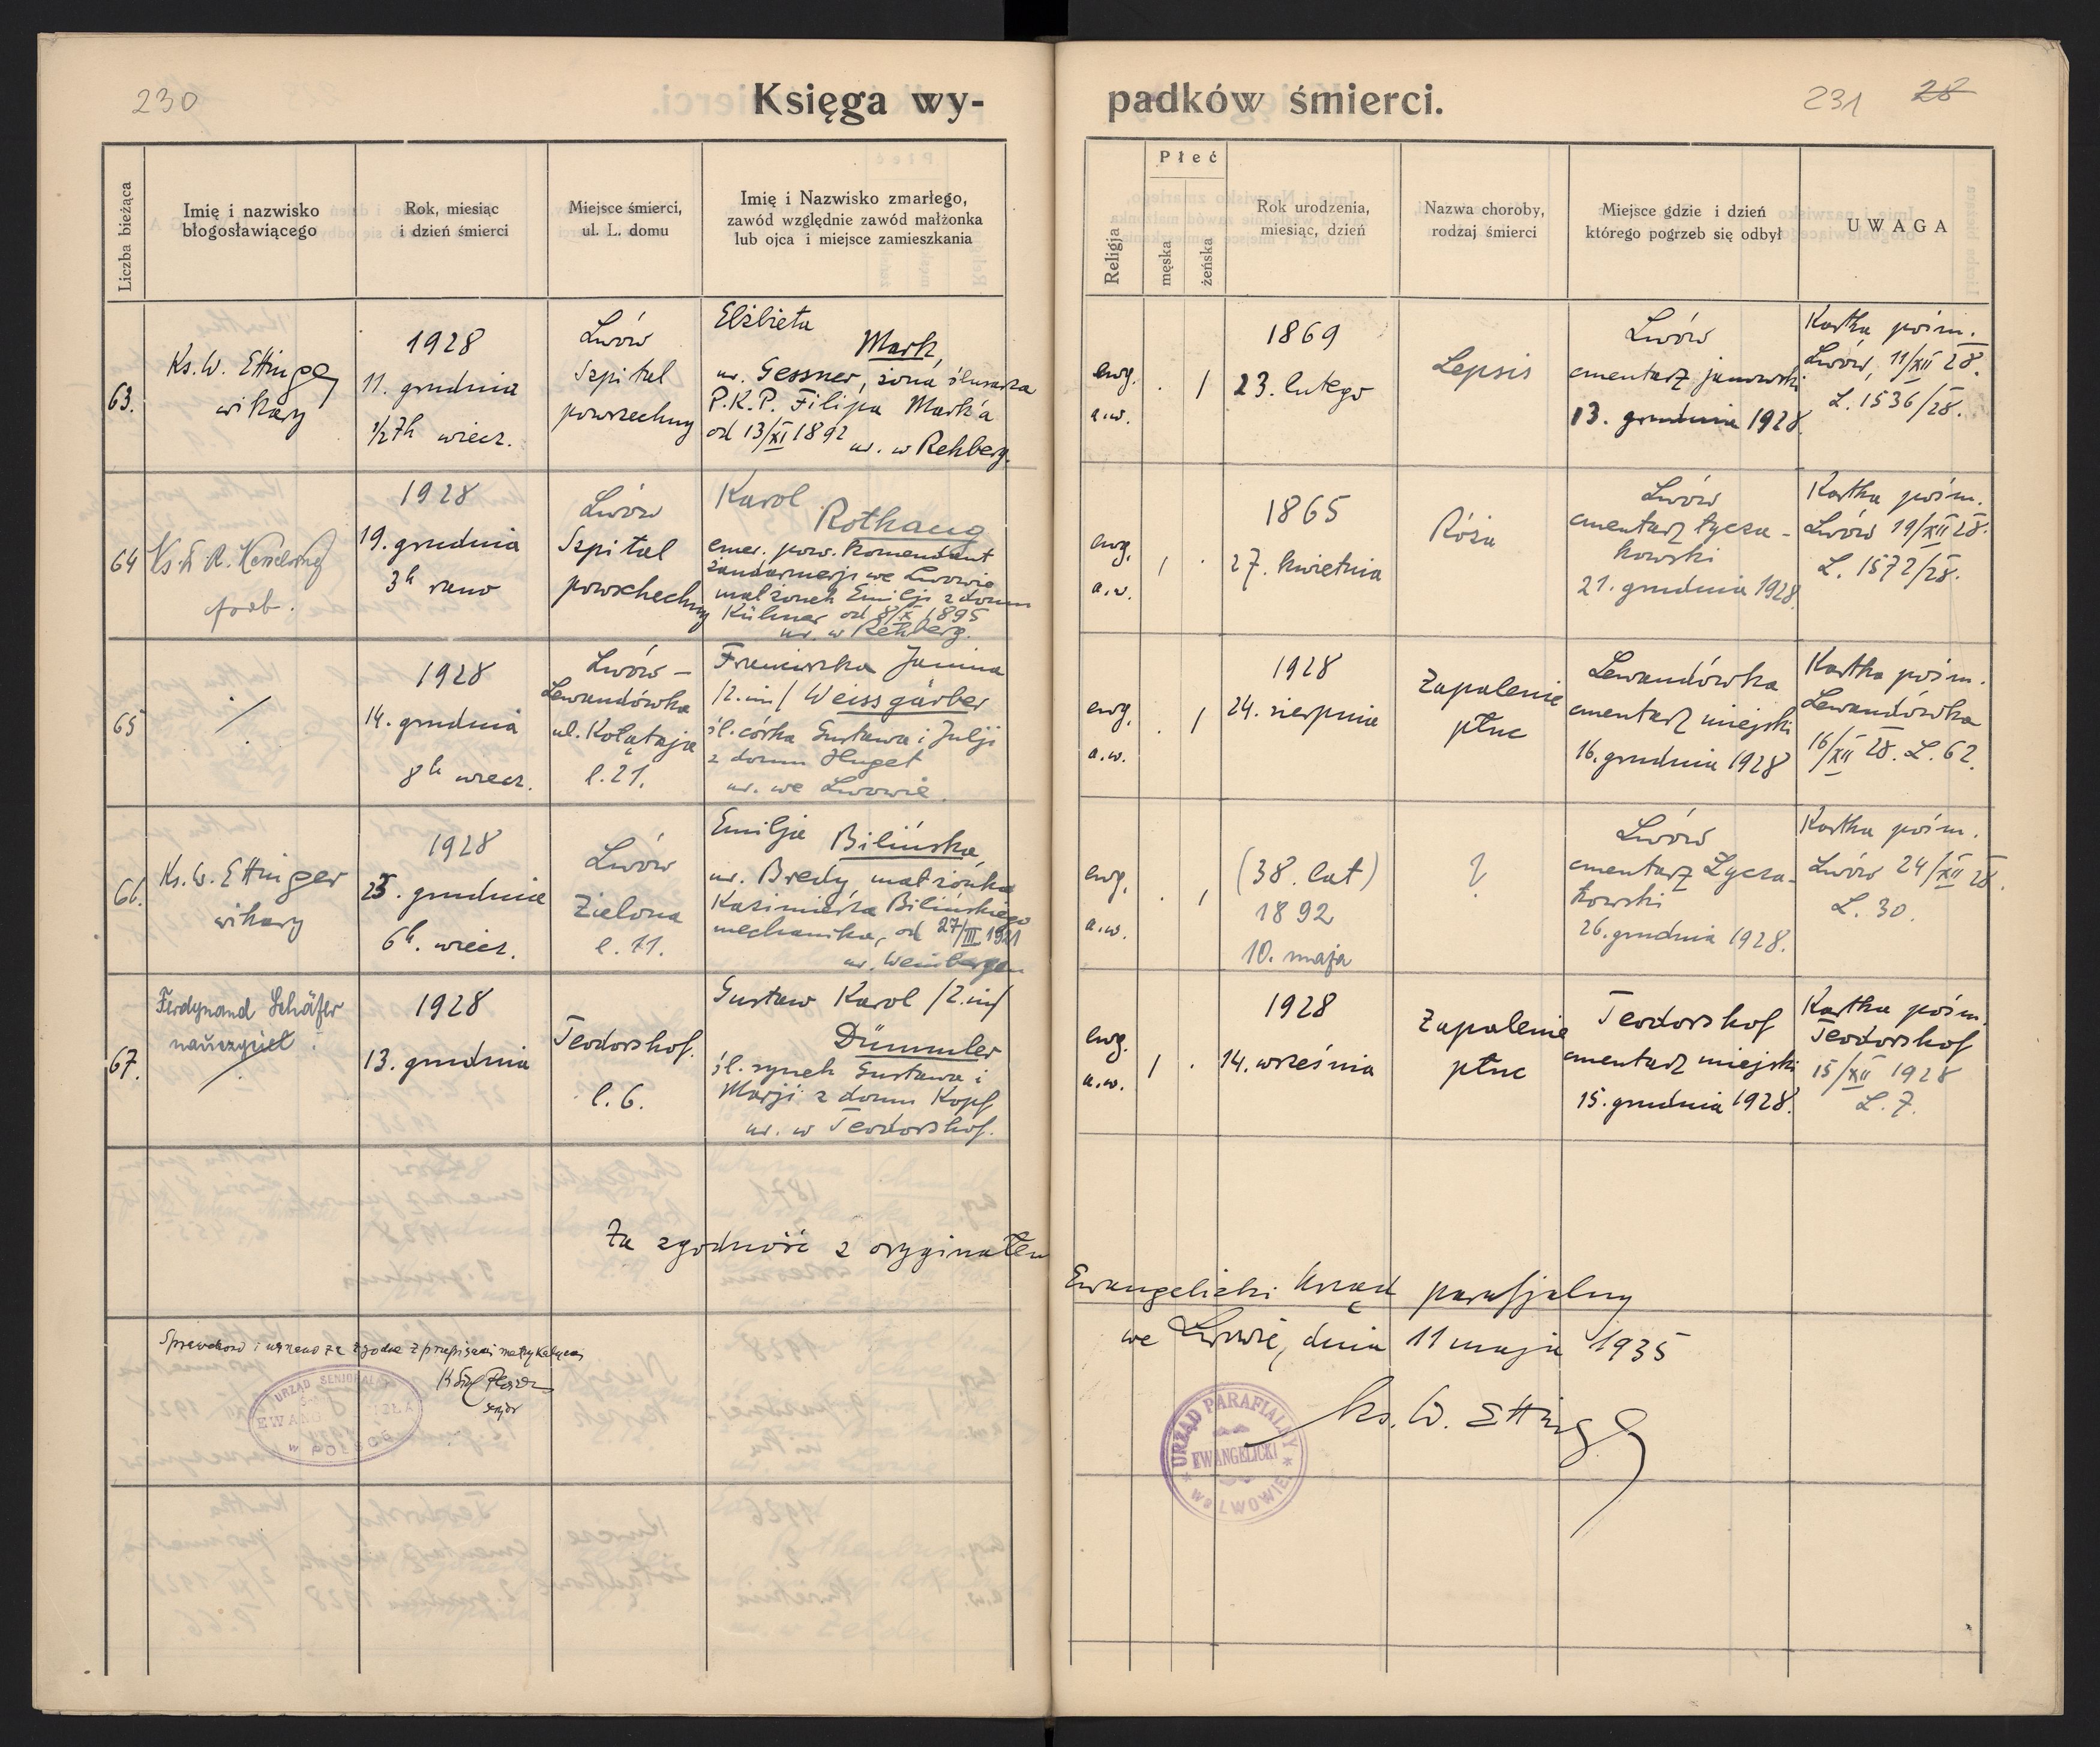 230
Księga wy-
padków śmierci.
231 28
Liczba bieżąca
Imię i nazwisko
błogosławiącego
Rok, miesiąc
i dzień śmierci
Miejsce śmierci,
ul. L. domu
Imię i Nazwisko zmarłego,
zawód względnie zawód małżonka
lub ojca i miejsce zamieszkania
Religja
Płeć
męska
żeńska
Rok urodzenia,
miesiąc, dzień
Nazwa choroby,
rodzaj śmierci
Miejsce gdzie i dzień
którego pogrzeb się odbył
UWAGA
63.
Ks. W. Ettinger
wikary
1928
11. grudnia
1/2 7h wiecz.
Lwów
Szpital
powszechny
Elżbieta
Mark,
ur. Gessner, żona ślusarza
P.K.P. Filipa Mark'a
od 13/XI 1892
ur. w Rehberg.
ewg.
a.w.
. 1
1869
23. lutego
Lepsis
Lwów
cmentarz janowski
13. grudnia 1928.
Kartka pośm.
Lwów, 11/XII 28.
L. 1536/28.
64
Ks. R. Kesselring
prob.
1928
19. grudnia
3h rano
Lwów
Szpital
powschechny
Karol
Rothaug
emer. pow. komendant
żandarmerji we Lwowie
małżonek Emilji z domu
Kühner od 8/X 1895
ur. w Rehberg.
ewg.
a.w.
1 .
1865
27. kwietnia
Róża
Lwów
cmentarz łycza-
kowski
21. grudnia 1928.
Kartka pośm.
Lwów 19/XII 28.
L. 1572/28.
65
1928
14. grudnia
8h wiecz.
Lwów -
Lewandówka
ul. Kołątaja
l. 21.
Franciszka Janina
/2.im/ Weissgärber
śl. córka Gustawa i Julji
z domu Huget
ur. we Lwowie.
ewg.
a.w.
. 1
1928
24. sierpnia
Zapalenie
płuc
Lewandówka
cmentarz miejski
16. grudnia 1928
Kartka pośm.
Lewandówka
16/XII 28. L. 62.
66.
Ks. W. Ettinger
wikary
1928
23. grudnia
6h. wiecz.
Lwów
Zielona
l. 11.
Emilja
Bilińska,
ur. Bredy, małżonka
Kazimierza Bilińskiego
mechanika, od 27/III 1921
ur. Weinbergen
ewg.
a.w.
. 1
(38. lat)
1892
10. maja
?
Lwów
cmentarz Łycza-
kowski
26. grudnia 1928.
Kartka pośm.
Lwów 24/XII 28.
L. 30.
67.
Ferdynand Schäfer
nauczyciel.
1928
13. grudnia
Teodorshof.
l. 6.
Gustaw Karol /2.im/
Dümmler
śl. synek Gustawa i
Marji z domu Kopf
ur. w Teodorshof.
ewg.
a.w.
1 .
1928
14. września
Zapalenie
płuc
Teodorshof
cmentarz miejski
15. grudnia 1928.
Kartka pośm.
Teodorshof
15/XII 1928
L. 7.
Za zgodność z oryginałem
Ewangelicki Urząd parafjalny
we Lwowie, dnia 11 maja 1935
ks. W. Ettinger
URZĄD PARAFIALNY
EWANGELICKI
we LWOWIE
Sprawdzono i uznano za zgodne z przepisami metrykalnemi
senjor
URZĄD SENJORALNY
W POLSCE